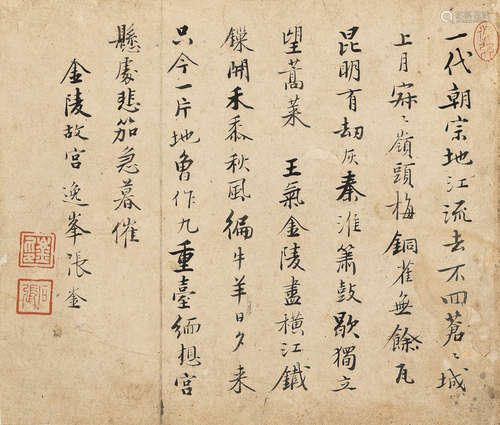 一代朝宗地江流去不回蒼〻城
上月寂〻嶺頭梅銅雀無餘瓦
昆明有劫灰秦淮簫鼓歇獨立
望蒿萊 王氣金陵盡橫江鐵
鏁開禾黍秋風徧牛羊日夕来
只今一片地曾作九重臺緬想宮
懸處悲笳急暮催
金陵故宮 逸峯張崟